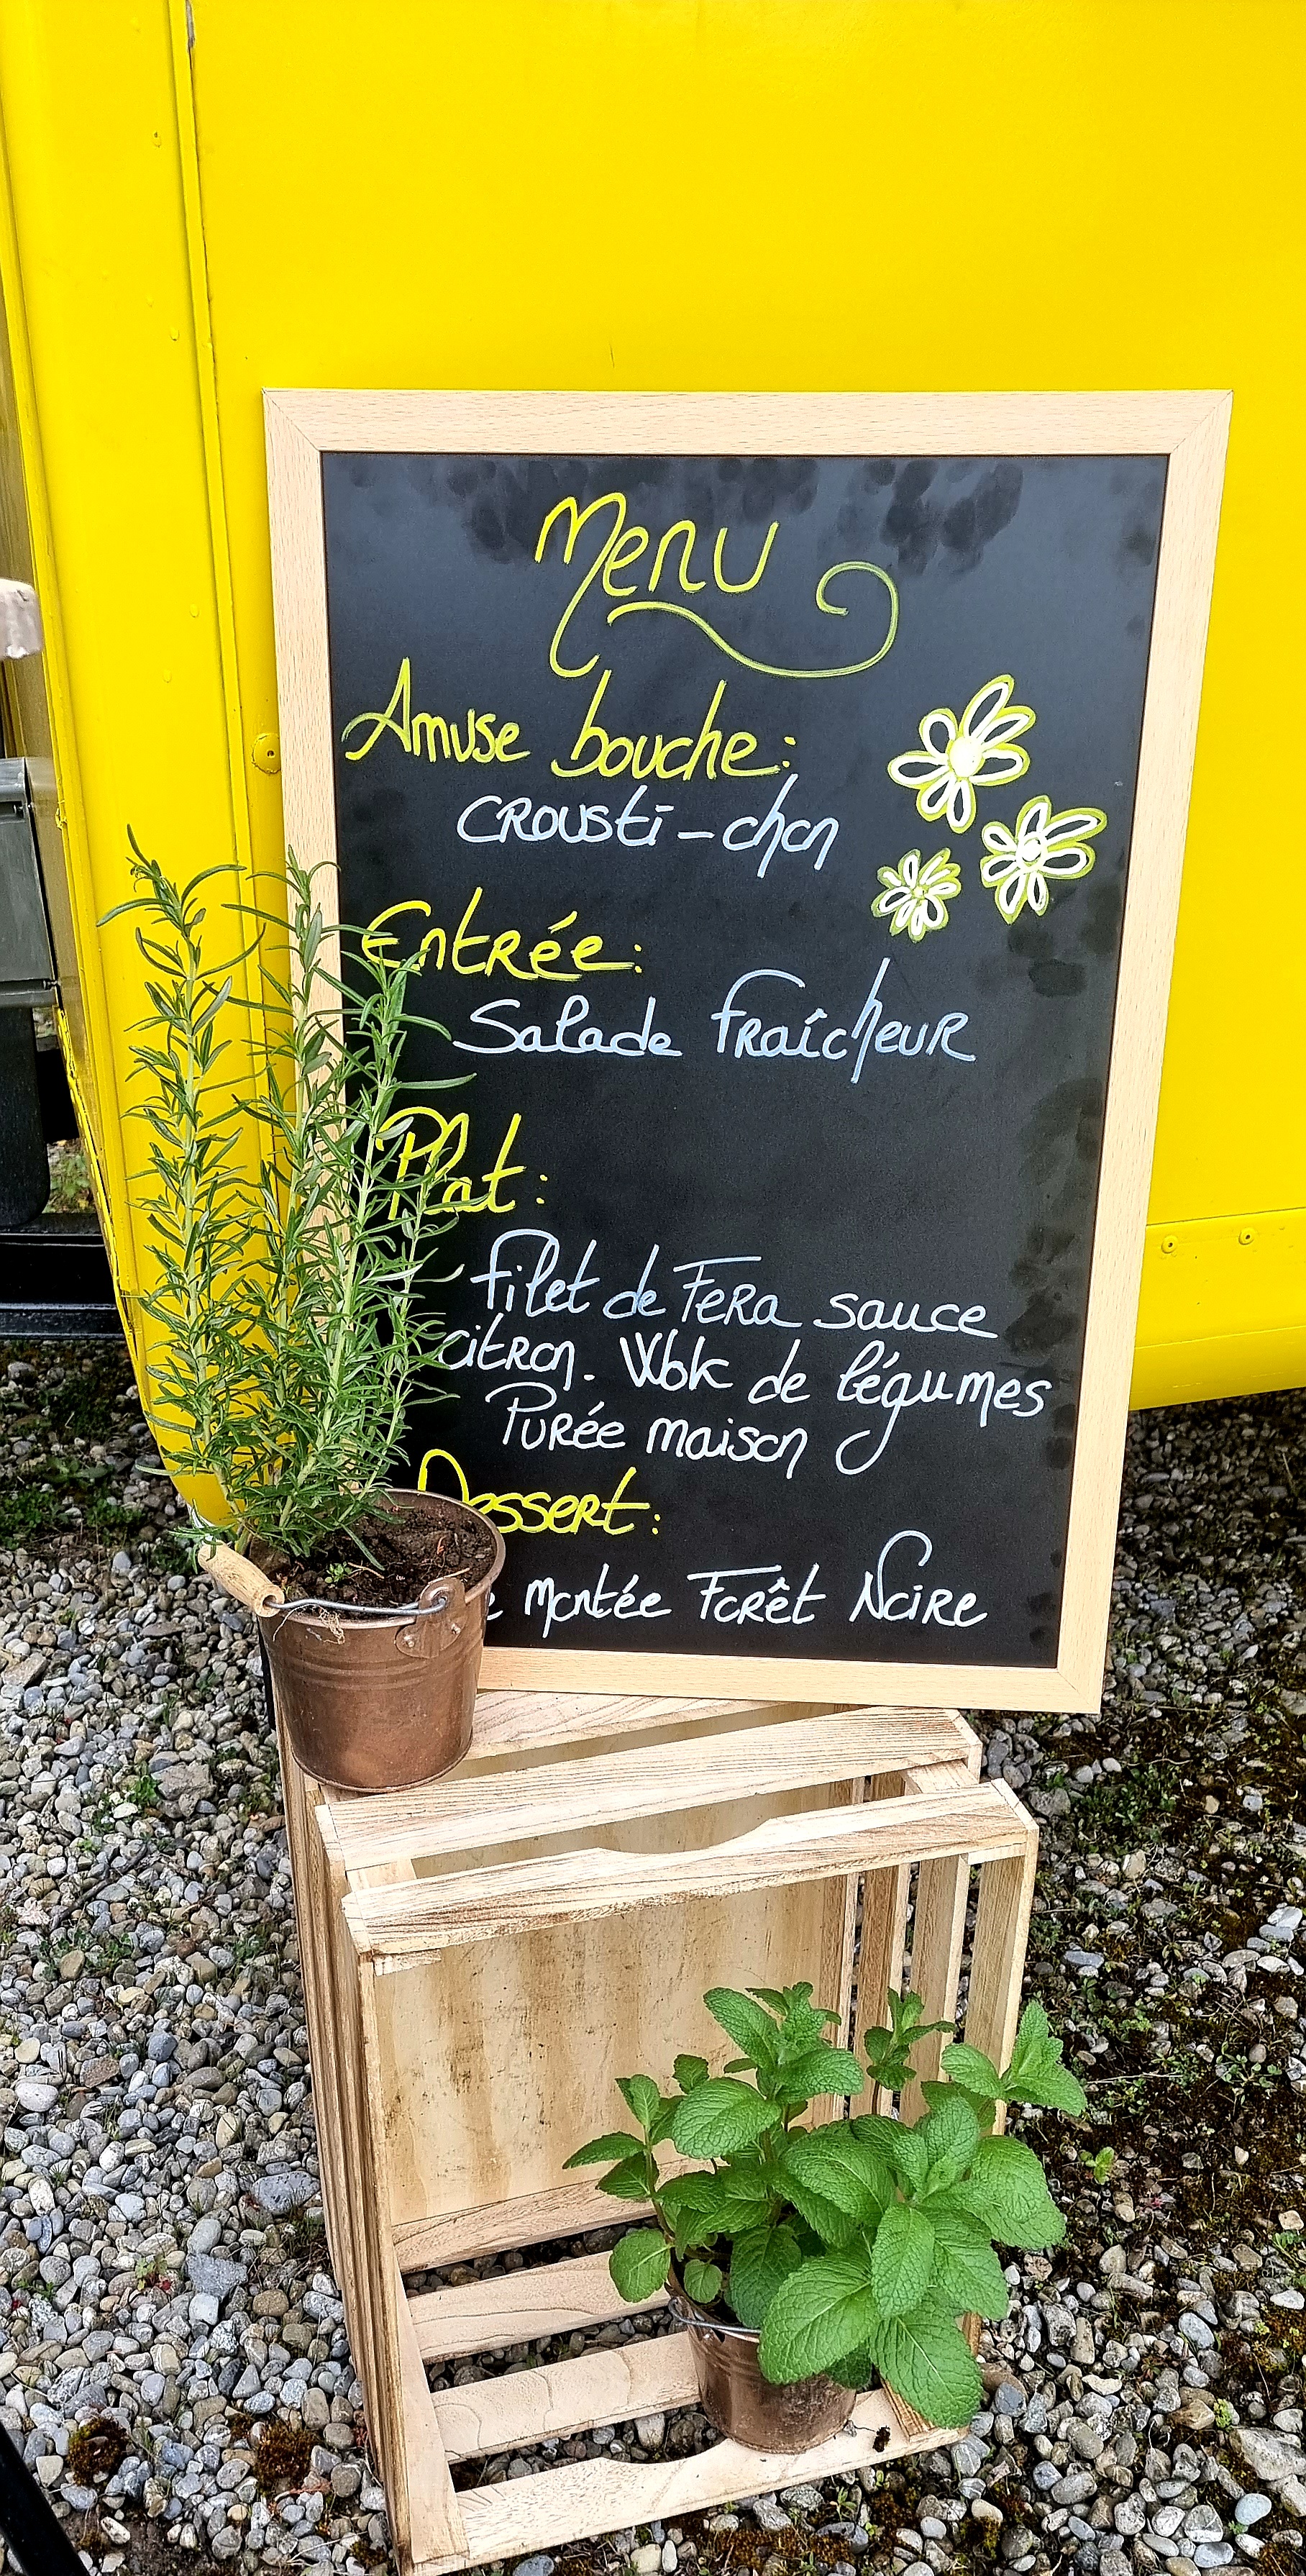 Menu
Amuse bouche:
Crousti-chon
Entrée:
Salade fraîcheur
Plat:
filet de Fera sauce
citron. Wok de légumes
Purée maison
Dessert:
montée Forêt Noire